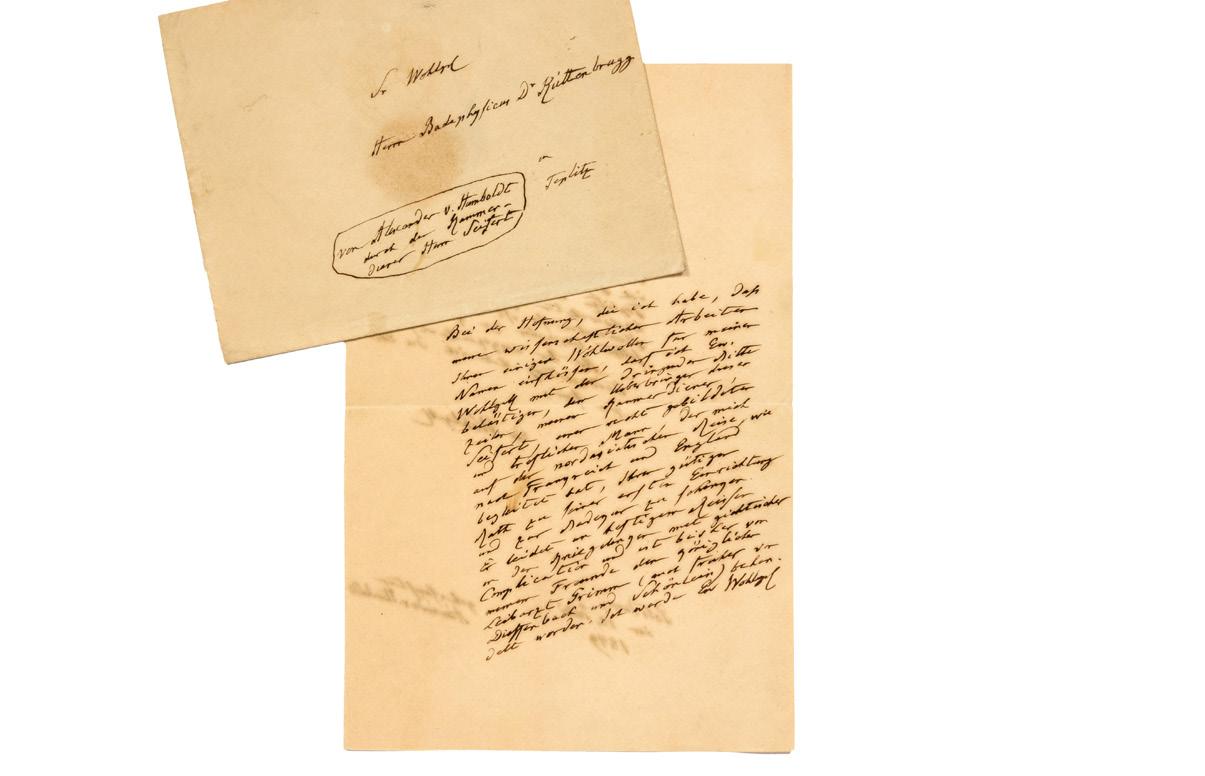 Sr Wohlgel
Herrn Badephysicus Dr Küttenbrugg
in
Teplitz
von Alexander v. Humboldt
durch den Kammer-
diener Herrn Seifert
Bei der Hofnung, die ich habe, daß
meine wissenschaftlichen Arbeiten
Ihnen einiges Wohlwollen für meinen
Namen einflößen, darf ich Ew.
Wohlgeb mit der dringenden Bitte
belästigen, dem Ueberbringer dieser
Zeilen, meinem Kammerdiener,
Seifert, einem recht gebildeten
und treflichen Mann, der mich
auf der nordasiatischen Reise, wie
nach Frangreich und England
begleitet hat, Ihren gütigen
Rath zu seiner ersten Einrichtung
und zur Badecur zu schengen.
Er leidet an heftigem Reissen
in den Kniegelengen mit gichtischer
Complication und ist bisher von
meinem Freunde dem königlichen
Leibarzt Grimm (auch früher von
Dieffenbach und Schönlein) behan-
delt worden. Ich werde Ew Wohlgel